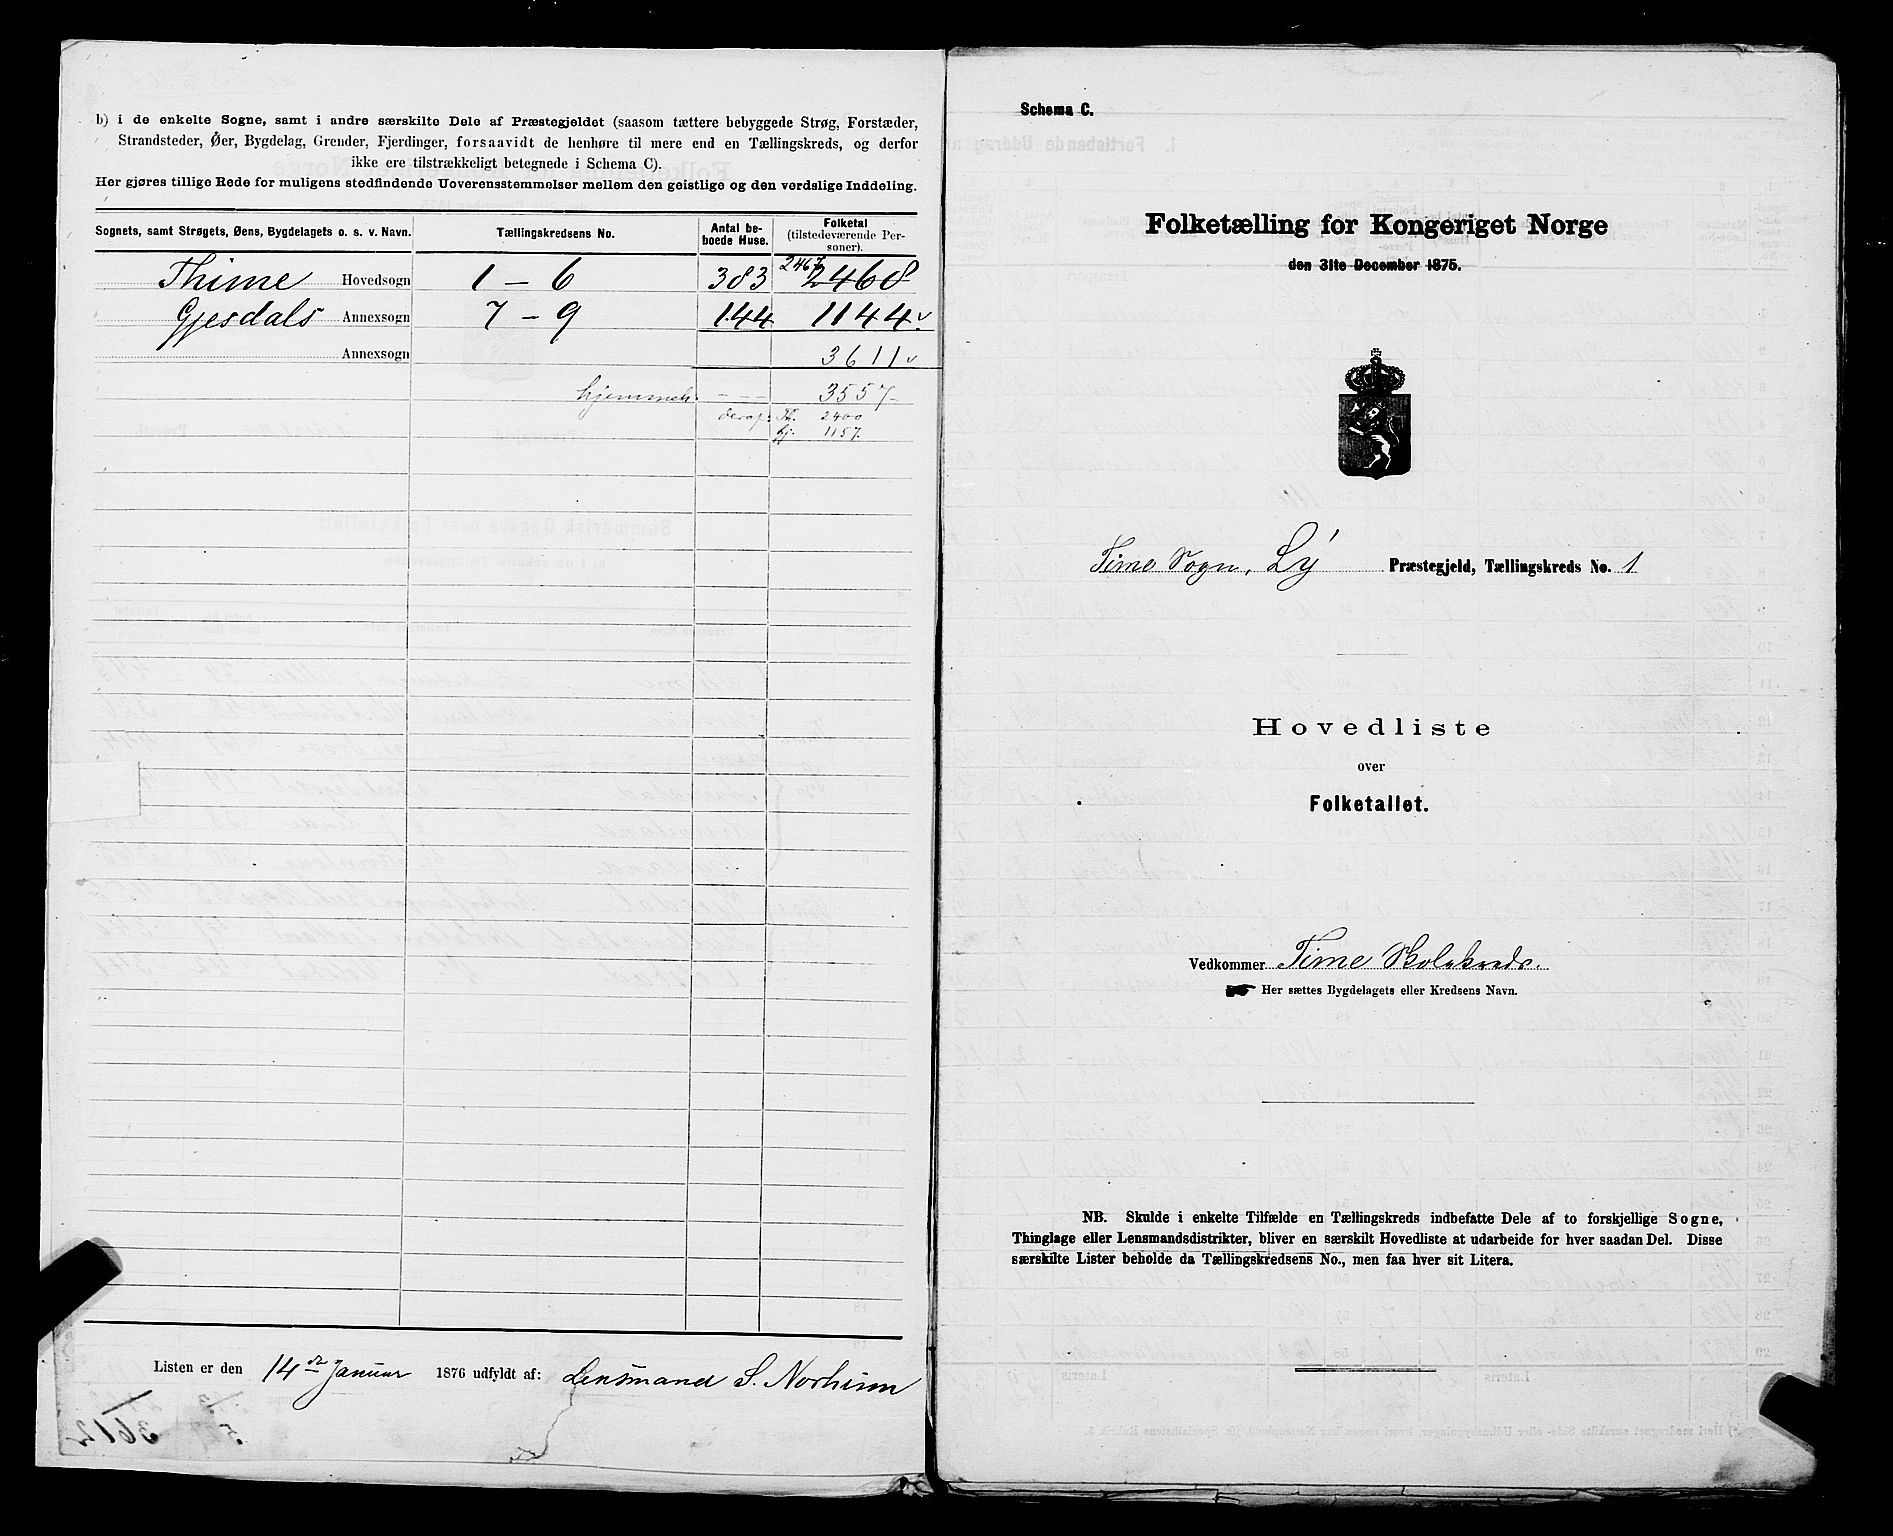 b) i de enkelte Sogne, samt i andre særskilte Dele af Præstegjeldet (saasom tættere bebyggede Strøg, Forstæder,
Strandsteder, Øer, Bygdelag, Grender, Fjerdinger, forsaavidt de henhøre til mere end en Tællingskreds, og derfor
ikke ere tilstrækkeligt betegnede i Schema C).
Her gjøres tillige Rede for muligens stedfindende Uoverensstemmelser mellem den geistlige og den verdslige Inddeling.
Sognets, samt Strøgets, Øens, Bygdelagets o. s. v. Navn. Tællingskredsens No. Antal beboede Huse. Folketal (tilstedeværende Personer).
Thime Hovedsogn 1 - 6 383 2467 2468
Gjesdals Annexsogn 7 - 9 144 1144
Annexsogn 3611
hjemmeh. - - - 3557
deraf: Th. 2400
Gj. 1157.
Listen er den 14de Januar 1876 udfyldt af: Lensmand S. Norheim
3612
Schema C.
Folketælling for Kongeriget Norge
den 31te December 1875.
Time Sogn, Lÿ Præstegjeld, Tællingskreds No. 1
Hovedliste
over
Folketallet.
Vedkommer Time Skolekreds.
Her sættes Bygdelagets eller Kredsens Navn.
NB. Skulde i enkelte Tilfælde en Tællingskreds indbefatte Dele af to forskjellige Sogne,
Thinglage eller Lensmandsdistrikter, bliver en særskilt Hovedliste at udarbeide for hver saadan Del. Disse
særskilte Lister beholde da Tællingskredsens No., men faa hver sit Litera.